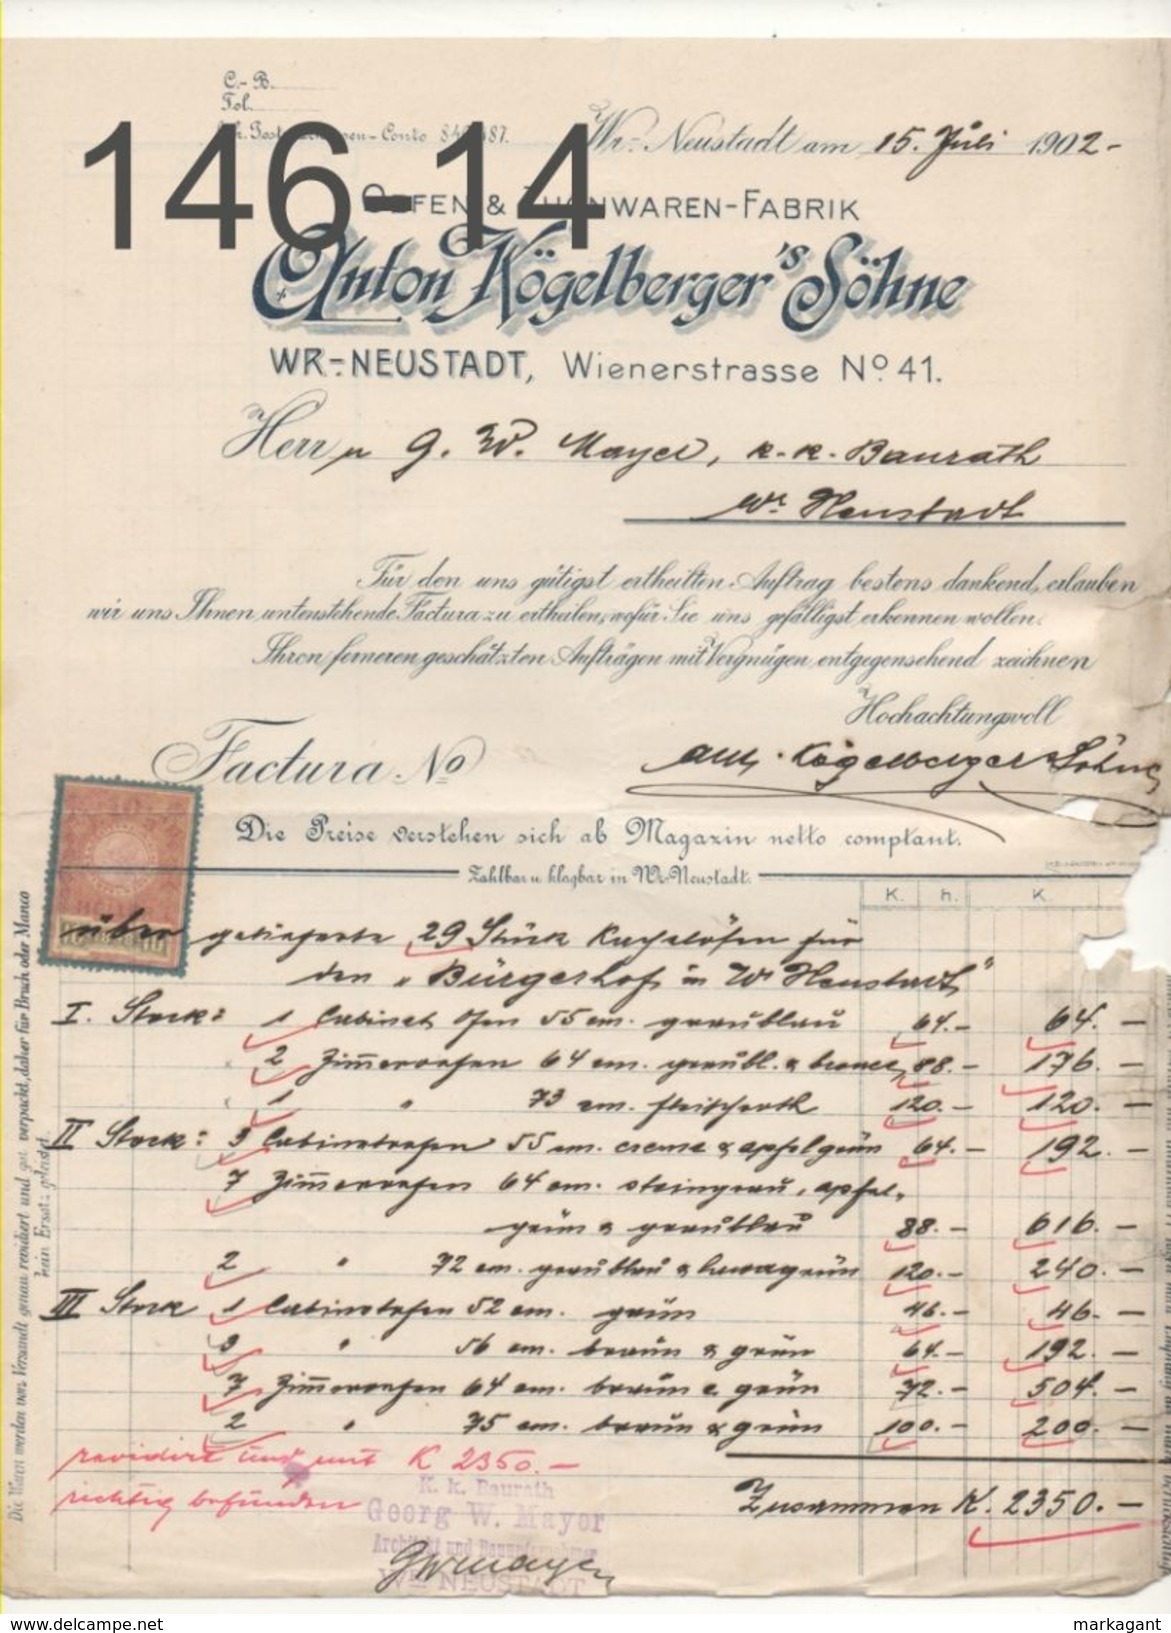 C.- B.
Fol.
146-14
Wr.- Neustadt am 15. Juli 1902-
& WAREN-FABRIK
Anton Kögelberger's Söhne
WR.-NEUSTADT, Wienerstrasse No 41.
Herrn G. W. Mayer, k. k. Baurath
Wr Neustadt
Für den uns gütigst ertheilten Auftrag bestens dankend, erlauben
wir uns Ihnen untenstehende Factura zu ertheilen, wofür Sie uns gefälligst erkennen wollen.
Ihren ferneren geschätzten Aufträgen mit Vergnügen entgegensehend zeichnen
Hochachtungsvoll
Factura No
Ant. Kögelberger Söhne
Die Preise verstehen sich ab Magazin netto comptant.
Zahlbar u klagbar in Wr-Neustadt.
K. h. K.
über gelieferte 29 Stück Kachelöfen für
den "Bürgerhof in Wr Neustadt"
I. Stock: 1 Cabinet Ofen 55 cm. graublau 64.- 64. -
2 Zimmerofen 64 cm. graubl. & braun 88.- 176. -
1 " 73 cm. fleischroth 120.- 120. -
II Stock: 3 Cabinetofen 55 cm. creme & apfelgrün 64.- 192. -
7 Zimmerofen 64 cm. steingrau, apfel-
grün & graublau 88.- 616. -
2 " 72 cm. graublau & grün 120.- 240. -
III Stock 1 Cabinetofen 52 cm. grün 46.- 46. -
3 " 56 cm. braun & grün 64.- 192. -
7 Zimmerofen 64 cm. braun & grün 72.- 504. -
2 " 75 cm. braun & grün 100.- 200. -
revidirt und mit K 2350.-
richtig befunden
Zusammen K. 2350. -
K. k. Baurath
Georg W. Mayer
Architect und Bauunternehmer
WR. NEUSTADT
GWMayer
Die Waren werden vor Versandt genau revidiert und gut verpackt, daher für Bruch oder Manco
kein Ersatz geleistet.
www.delcampe.net
markagant